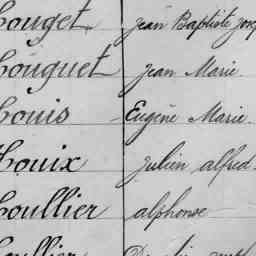 ouget Jean Baptiste Jos
ouquet Jean Marie
ouis Eugène Marie
ouix Julien alfred
oullier alphonse